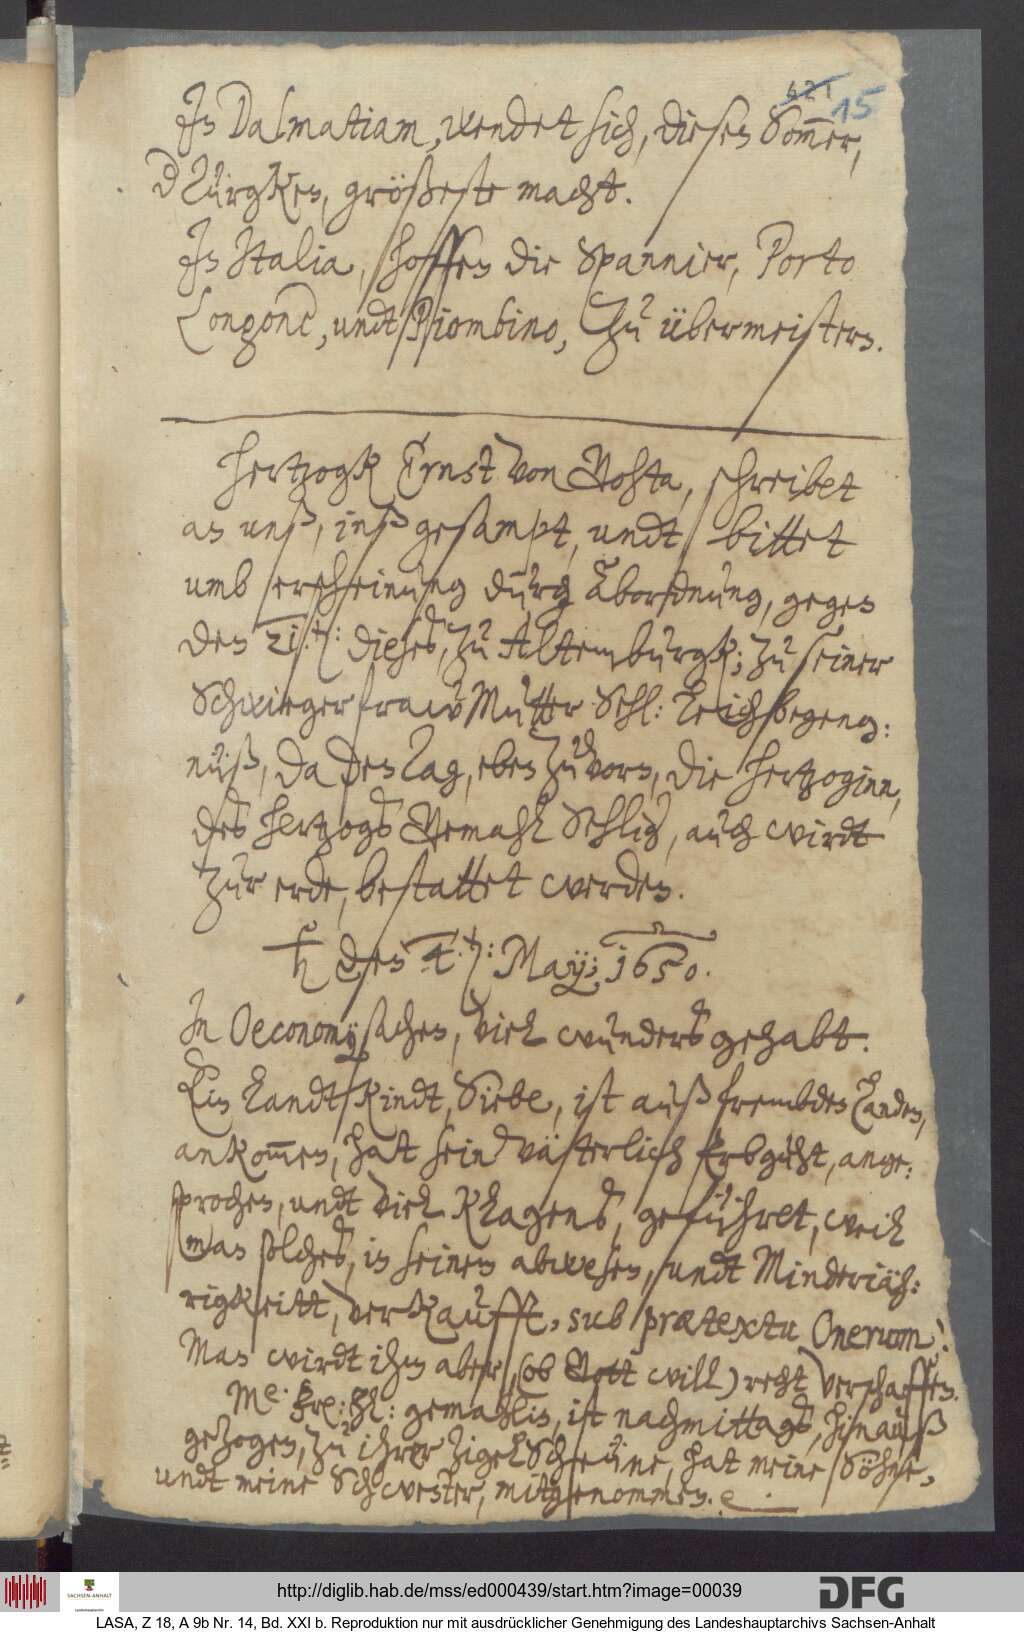 621 15
In Dalmatiam, wendet sich, diesen Sommer,
d Türgken, größeste macht.
In Italia, hoffen die Spannier, Porto
Longone, undt Piombino, zu übermeistern.
Hertzogk Ernst von Gohta, schreibet
an unß, inß gesampt, undt bittet
umb erscheinung durch Abordnung, gegen
den 21.t: dieses, zu Altemburgk; zu seiner
Schwieger fraw Mutter Sehl: Leichbegeng:
nüß, da den Tag, eben zuvorn, die Hertzoginn,
des Hertzogs Gemahl Sehlig, auch wirdt
zur erde, bestattet werden.
♄ den 4.t: May; 1650.
In Oeconomysachen, viel wunders gehabt.
Ein Landtkindt, Siebe, ist auß frembden Landen,
ankom̄en, hat sein väterlich Erbguht, ange:
sprochen, undt viel Klagens, geführet, weil
man solches, in seinem abwesen, undt Minderiäh:
rigkeitt, verkaufft, sub prætextu Onerum;
Man wirdt ihm aber, (ob Gott will) recht verschaffen.
Me. fre: hl: gemahlin, ist nachmittags, hinauß
gezogen, zu ihrer ZigelScheüne, hat meine Söhne,
undt meine Schwester, mitgenommen.
http://diglib.hab.de/mss/ed000439/start.htm?image=00039
SACHSEN-ANHALT
DFG
LASA, Z 18, A 9b Nr. 14, Bd. XXI b. Reproduktion nur mit ausdrücklicher Genehmigung des Landeshauptarchivs Sachsen-Anhalt